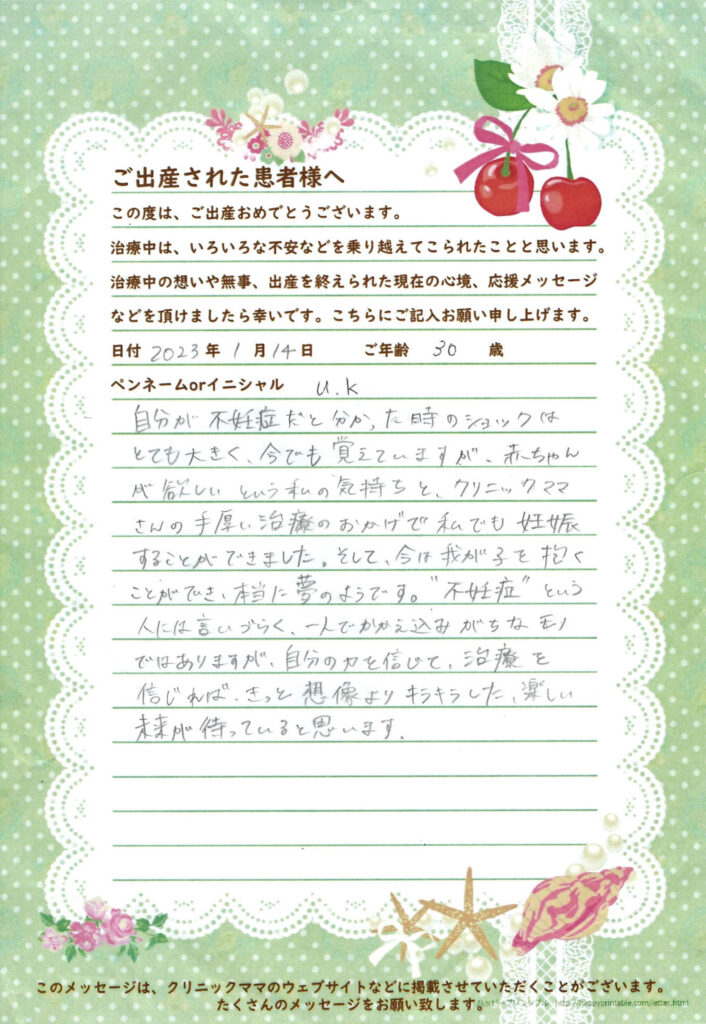 ご出産された患者様へ
この度は、ご出産おめでとうございます。
治療中は、いろいろな不安などを乗り越えてこられたことと思います。
治療中の想いや無事、出産を終えられた現在の心境、応援メッセージ
などを頂けましたら幸いです。こちらにご記入お願い申し上げます。
日付 2023 年 1 月 14 日 ご年齢 30 歳
ペンネームorイニシャル U.K
自分が不妊症だと分かった時のショックは
とても大きく、今でも覚えていますが、赤ちゃん
が欲しいという私の気持ちと、クリニックママ
さんの手厚い治療のおかげで私でも妊娠
することができました。そして、今は我が子を抱く
ことができ、本当に夢のようです。"不妊症"という
人には言いづらく、一人でかかえ込みがちなモノ
ではありますが、自分の力を信じて、治療を
信じれば、きっと想像よりキラキラした、楽しい
未来が待っていると思います。
このメッセージは、クリニックママのウェブサイトなどに掲載させていただくことがございます。
たくさんのメッセージをお願い致します。
ハッピープリンタブル http://happyprintable.com/letter.html